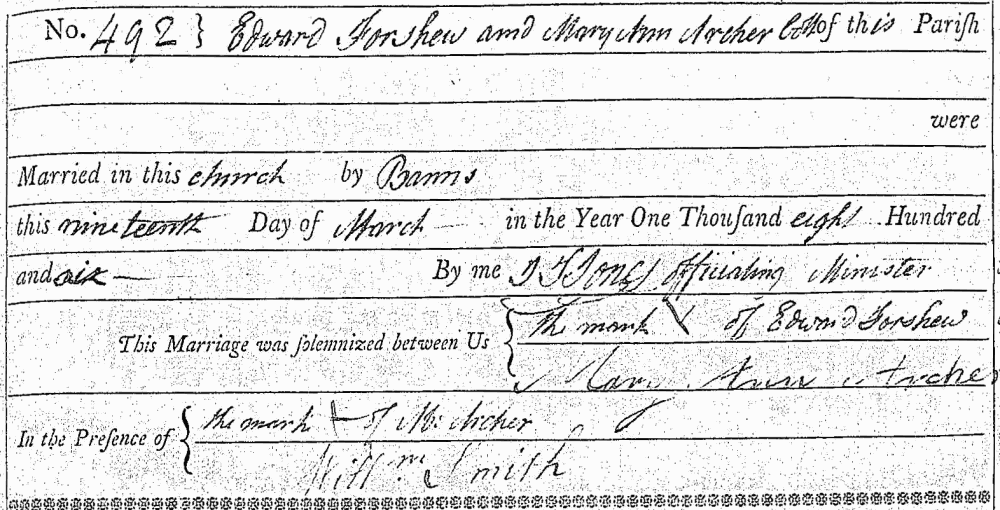 No. 492 } Edward Forshew and Mary Ann Archer both of this Pariſh
were
Married in this church by Banns
this nineteenth Day of March in the Year One Thouſand eight Hundred
and six By me Jones officiating Minister
This Marriage was ſolemnized between Us { the mark X of Edward Forshew
Mary Ann Archer
In the Preſence of { the mark + of Archer
Will.m Smith